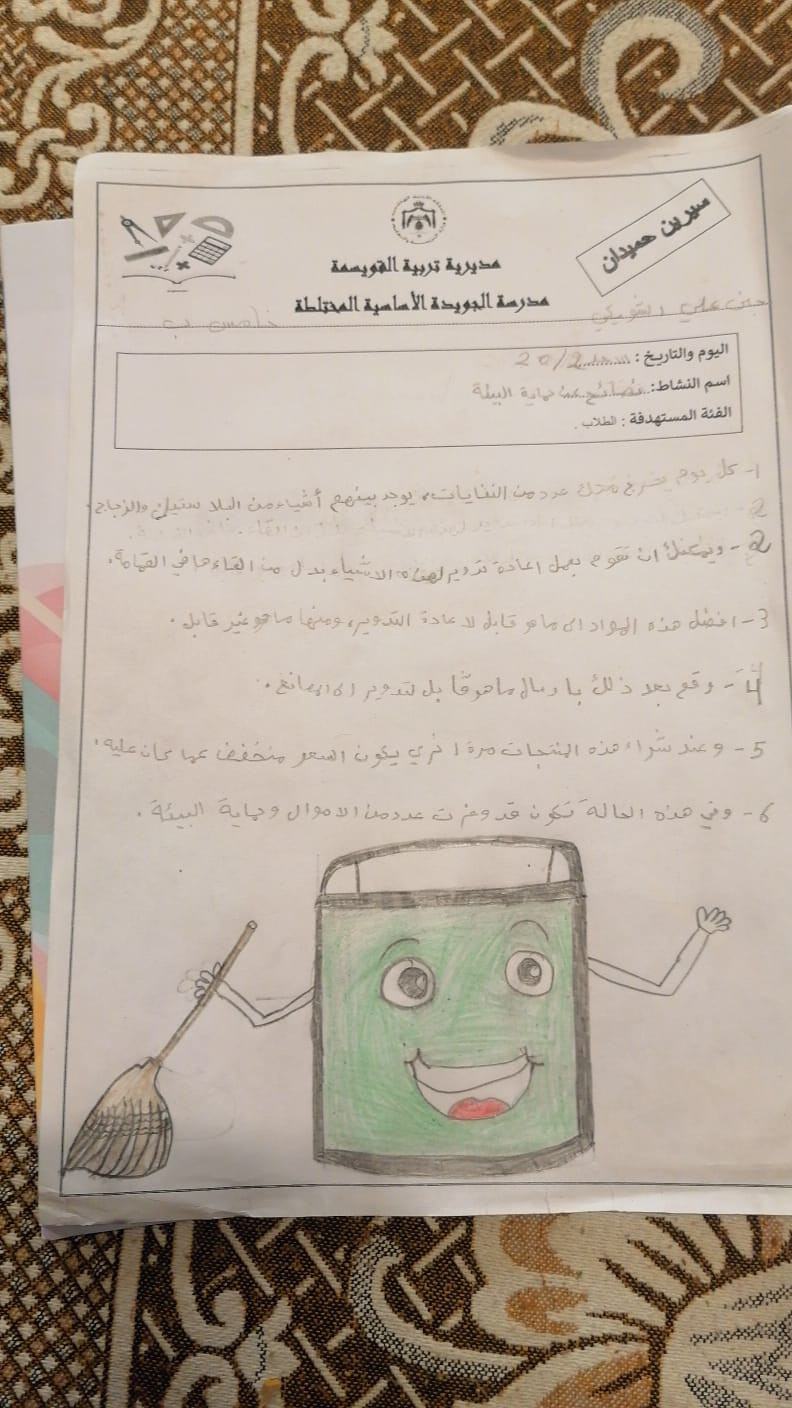 سيرين حميدان
مديرية تربية القويسمة
مدرسة الجويدة الأساسية المختلطة
علي الشويكي
خامس ب
اليوم والتاريخ : الاحد 20/2
اسم النشاط: نصائح عن حماية البيئة
الفئة المستهدفة : الطلاب .
1- كل يوم يخرج منك عدد من النفايات، يوجد بينهم أشياء من البلاستيك والزجاج.
2- ويمكنك ان تقوم بعمل اعادة تدوير لهذه الاشياء بدل من القاءها في القمامة.
3- افضل هذه المواد الى ما هو قابل لاعادة التدوير، ومنها ما هو غير قابل.
4- وقم بعد ذلك بارسال ما هو قابل لتدوير الى المصانع.
5- وعند شراء هذه المنتجات مرة اخري يكون السعر منخفض عما كان عليه.
6- وفي هذه الحالة تكون قد وفرت عدد من الاموال وحماية البيئة.